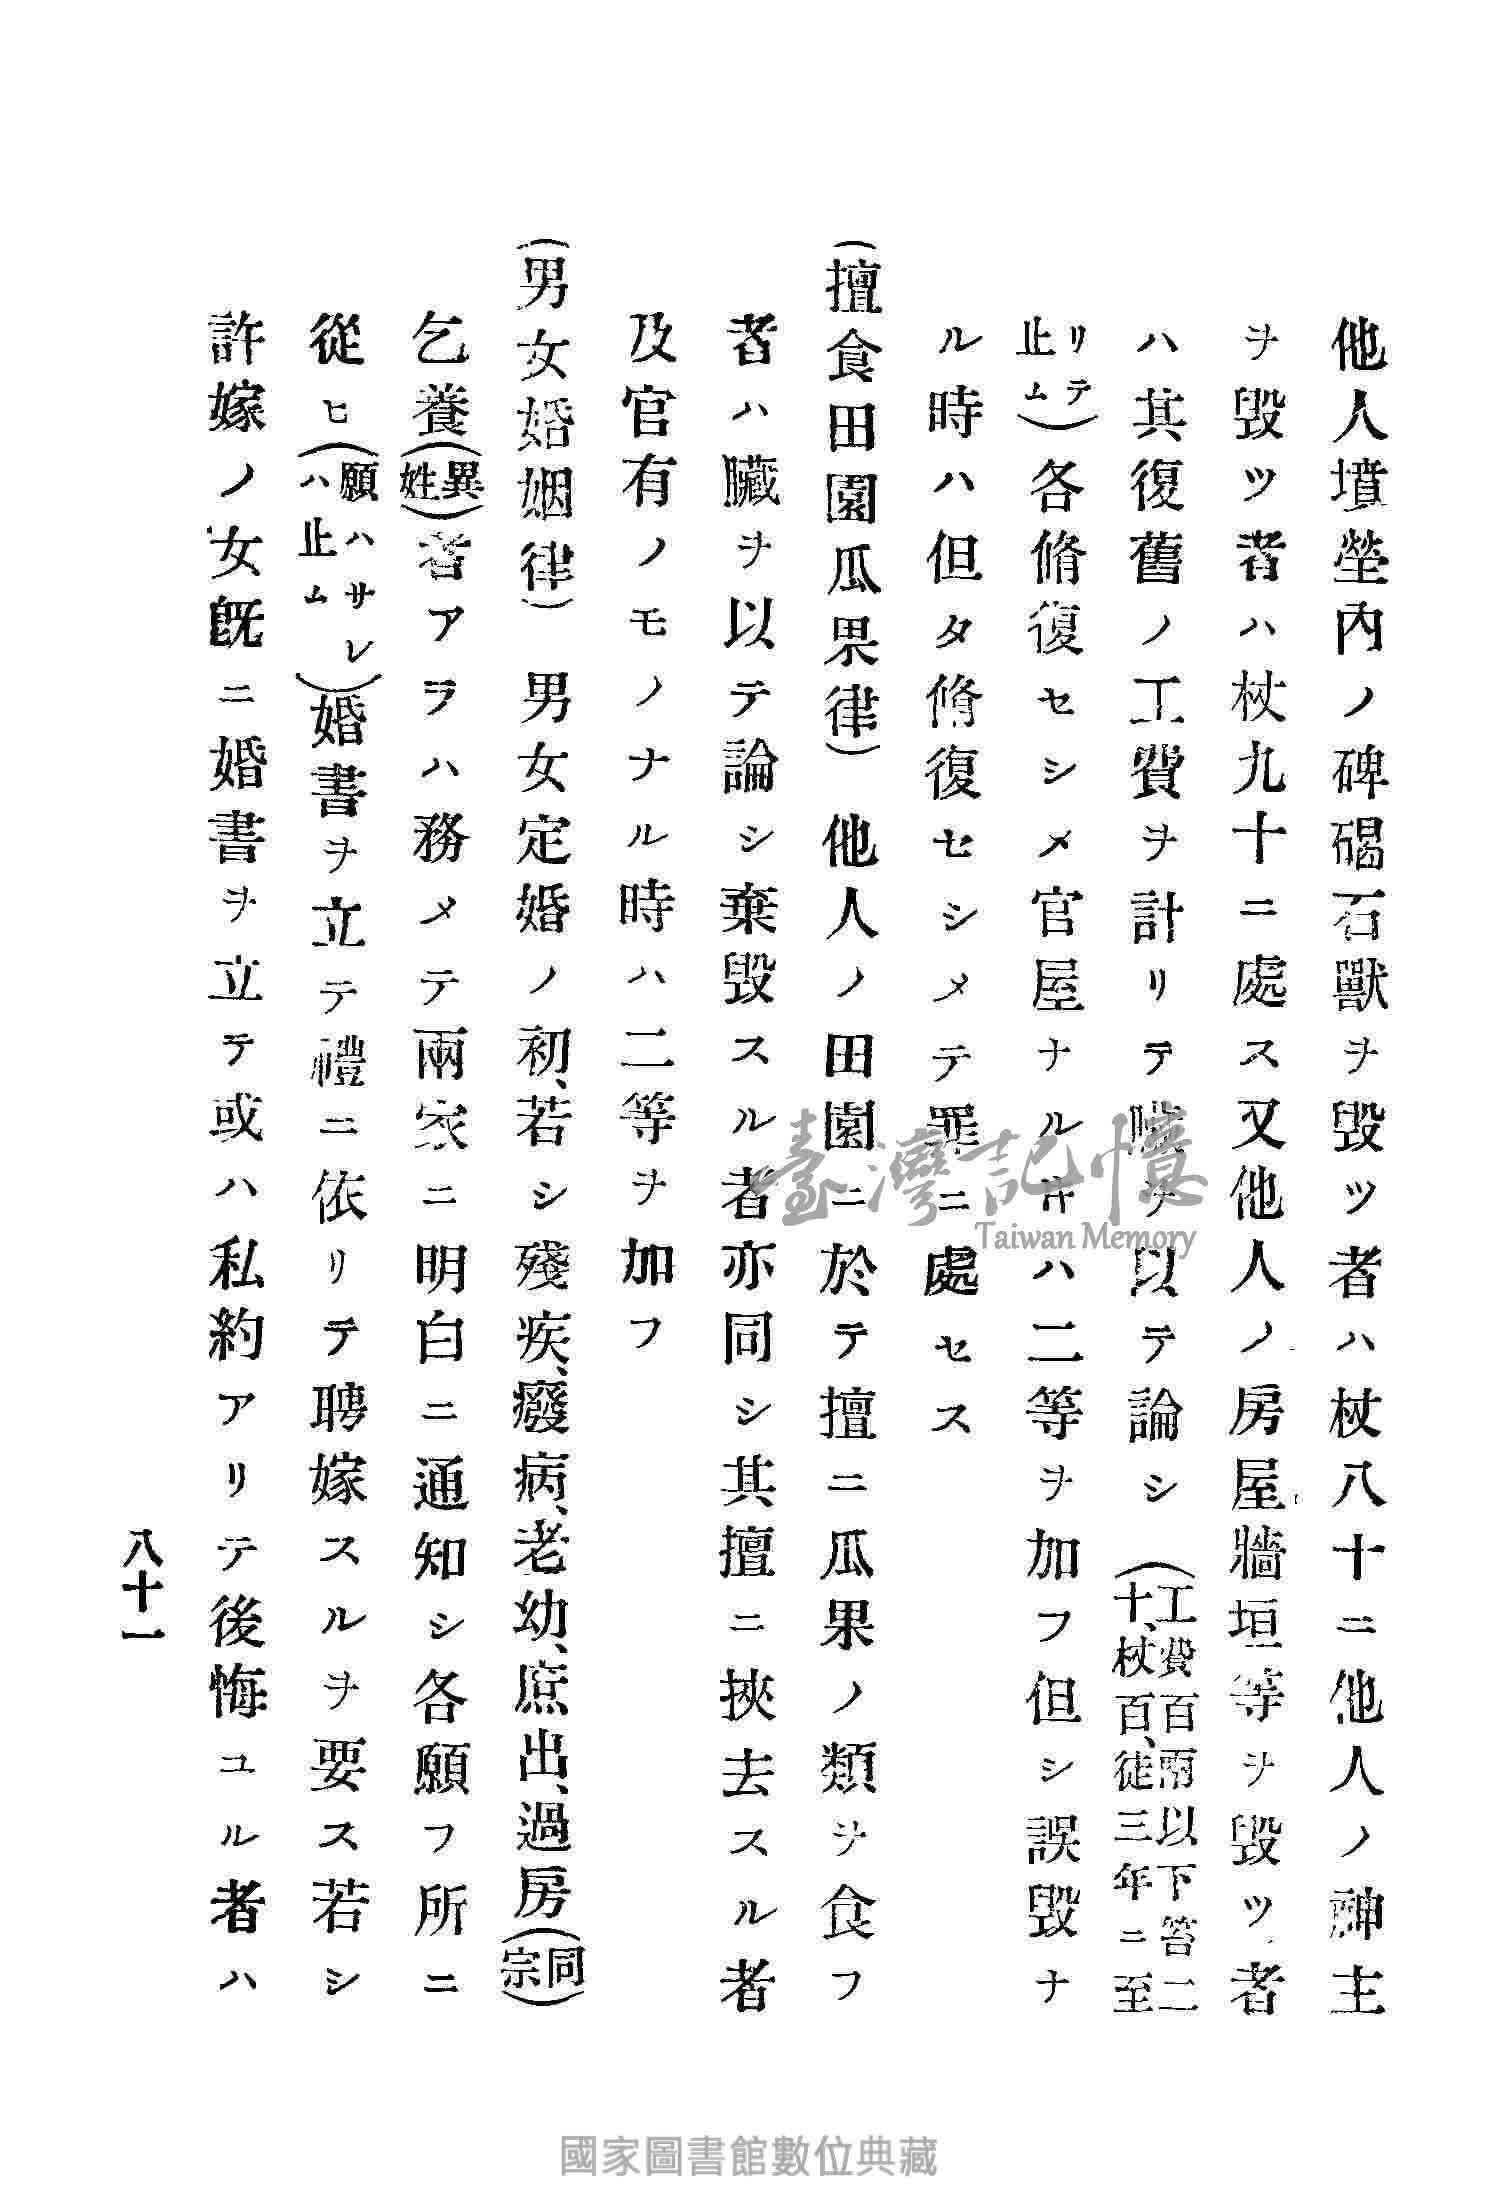 他人墳塋內ノ碑碣石獸ヲ毀ツ者ハ杖八十ニ他人ノ神主
ヲ毀ツ者ハ杖九十ニ處ス又他人ノ房屋牆垣等ヲ毀ツ者
ハ其復舊ノ工費ヲ計リテ贓ヲ以テ論シ(工費百兩以下笞二十、杖百、徒三年ニ至
リテ止ム)各脩復セシメ官屋ナルㇳキハ二等ヲ加フ但シ誤毀ナ
ル時ハ但タ脩復セシメテ罪ニ處セス
(擅食田園瓜果律)他人ノ田園ニ於テ擅ニ瓜果ノ類ヲ食フ
者ハ贓ヲ以テ論シ棄毀スル者亦同シ其擅ニ挾去スル者
及官有ノモノナル時ハ二等ヲ加フ
(男女婚姻律)男女定婚ノ初、若シ殘疾、癈病、老幼、庶出、過房(同宗)
乞養(異姓)者アラハ務メテ兩家ニ明白ニ通知シ各願フ所ニ
從ヒ(願ハサレハ止ム)婚書ヲ立テ禮ニ依リテ聘嫁スルヲ要ス若シ
許嫁ノ女既ニ婚書ヲ立テ或ハ私約アリテ後悔ユル者ハ
八十一
臺灣記憶
Taiwan Memory
國家圖書館數位典藏